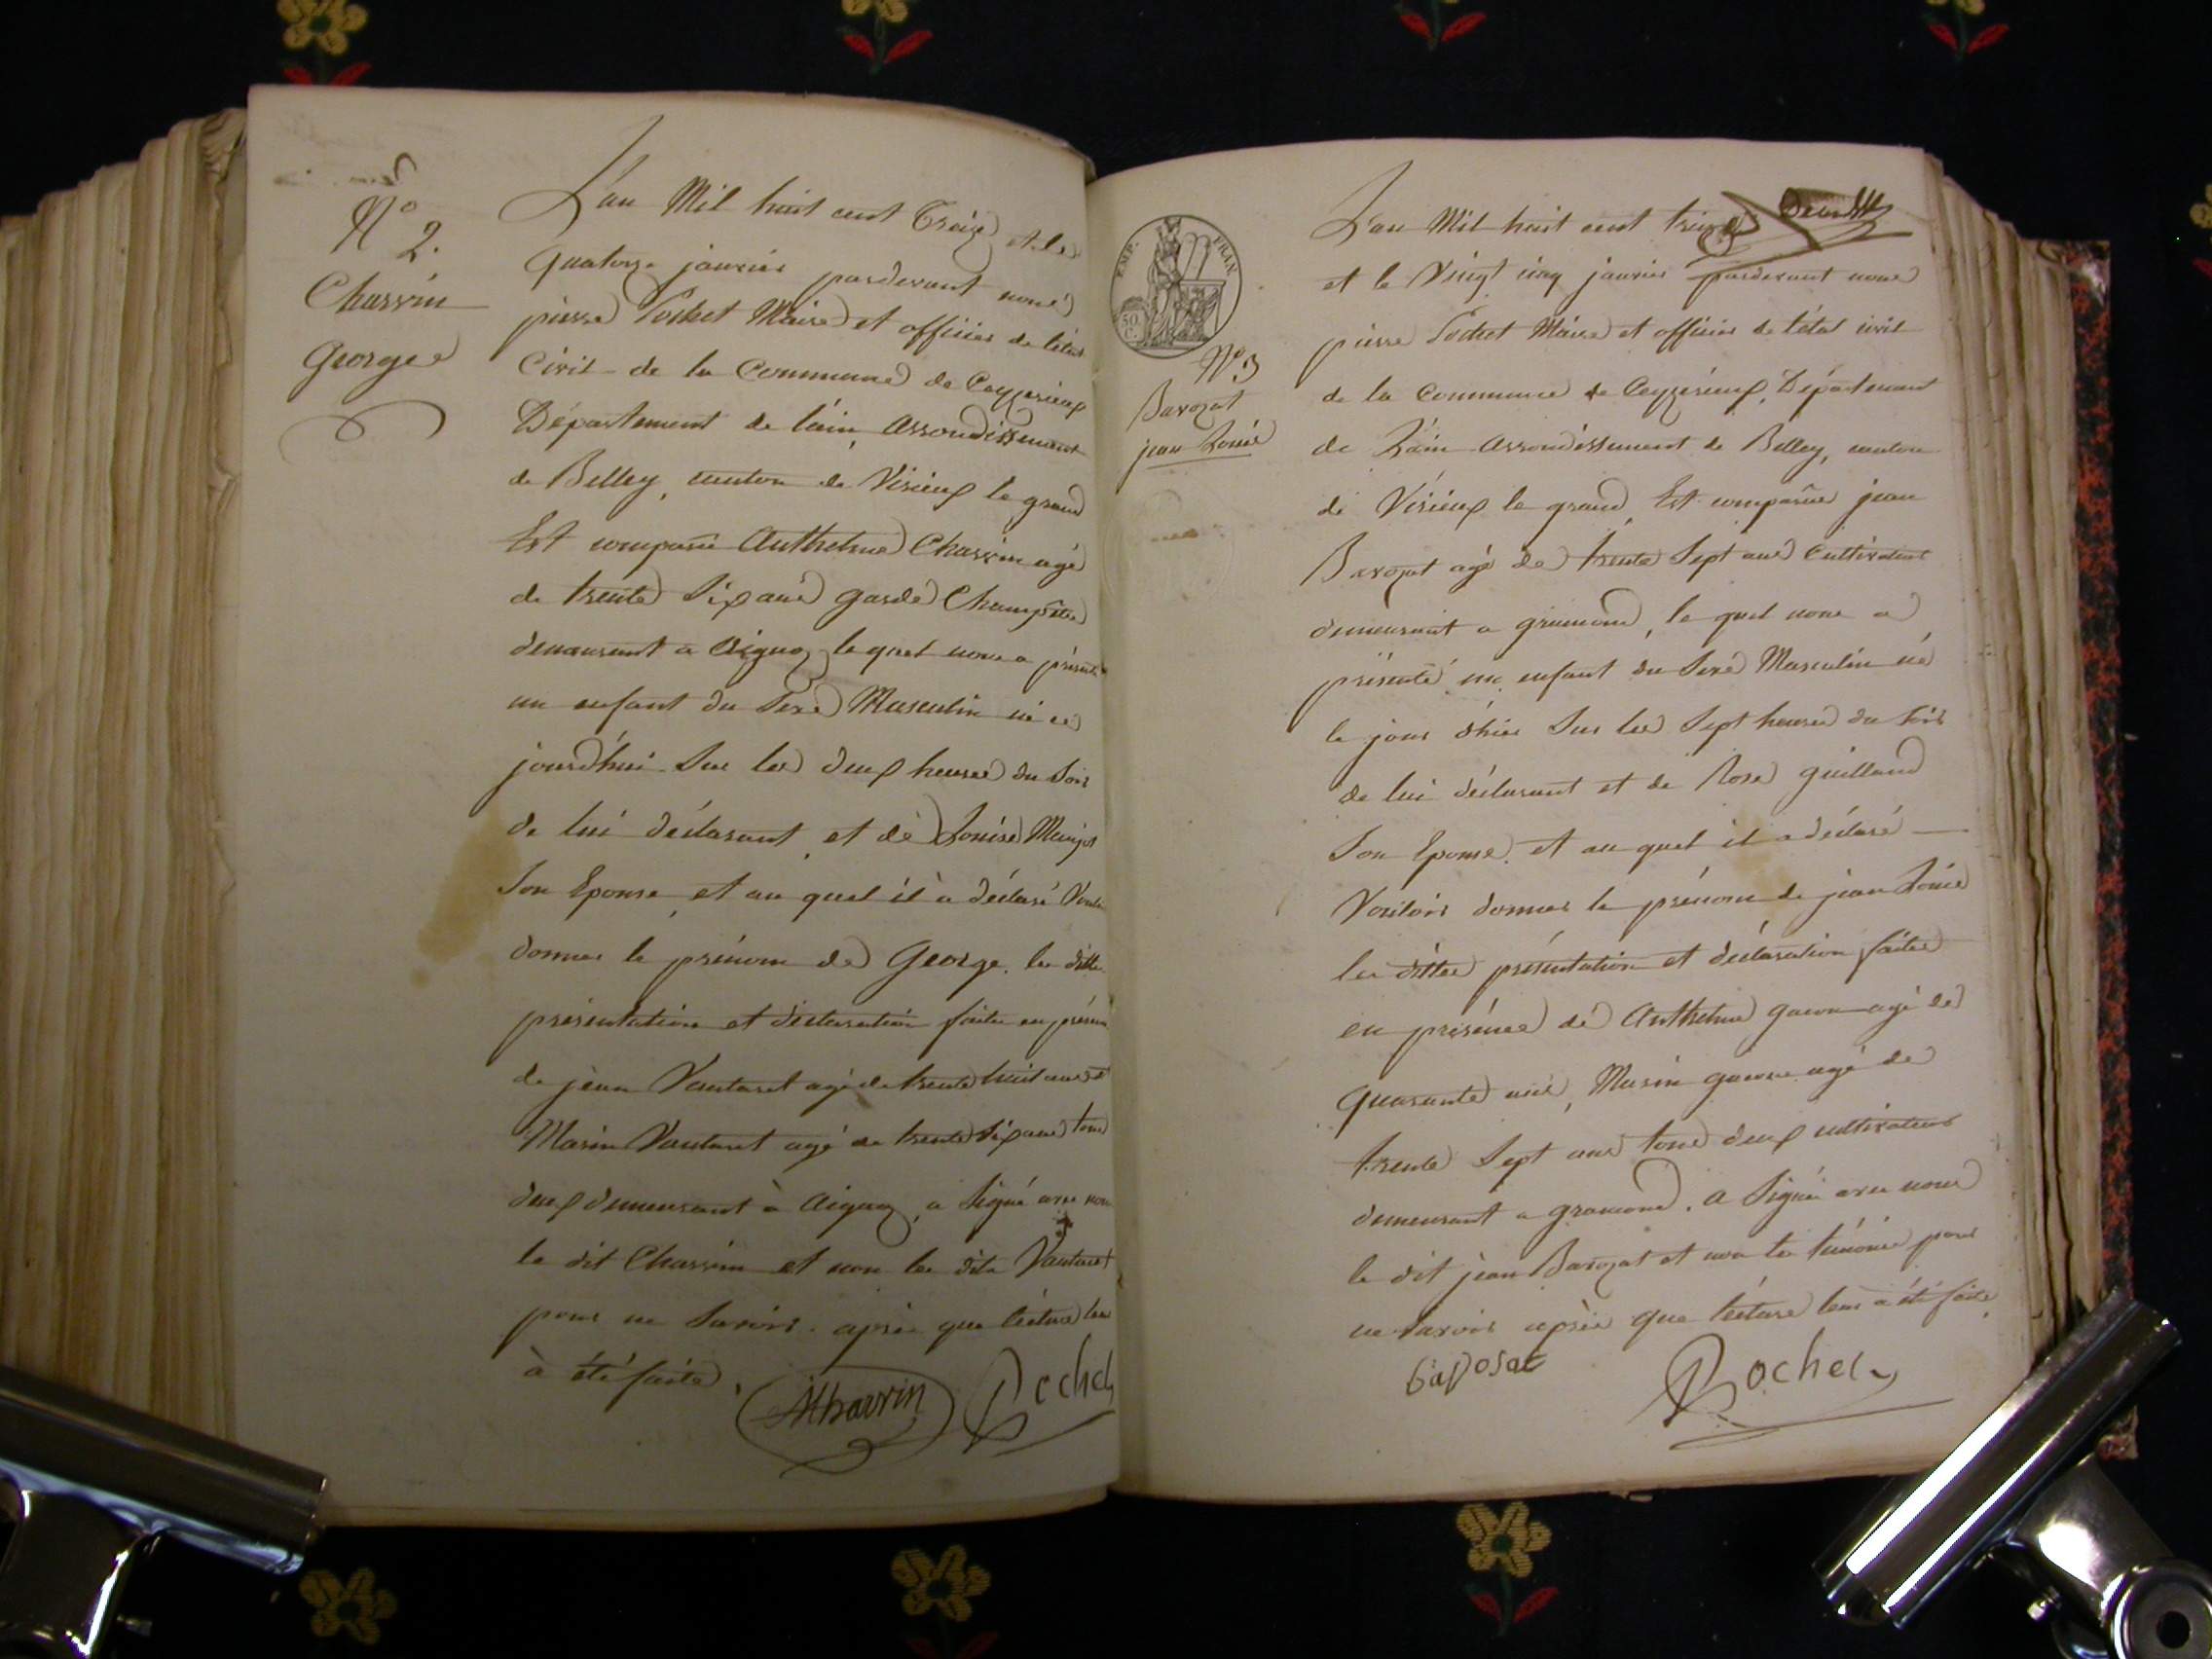 N° 2.
Charvin
George
L'an Mil huit cent Treize et le
quatorze janvier pardevant nous
pierre Rochet Maire et officier de l'état
Civil de la Commune de Ceyzerieux
Département de l'ain, arrondissement
de Belley, canton de Virieux le grand
Est comparu Anthelme Charvin agé
de trente Six ans garde Champêtre
demeurant à Aignoz, le quel nous a présenté
un enfant du Sexe Masculin né ce
jourd'hui Sur les deux heures du Soir
de lui déclarant, et de Louise
Son Epouse, et au quel il à déclaré Vouloir
donner le prénom de George. les dittes
présentation et déclaration faites en présence
de jean Vautaret agé de trente huit ans et
Marin Vautaret agé de trente Six ans tous
deux demeurant à Aignoz, a Signé avec nous
le dit Charvin et non les dits Vautaret
pour ne Savoir. après que lécture leur
à été faite.
Charvin Rochet
EMP. FRAN.
50 C.
N° 3
Barozat
jean Louis
L'an Mil huit cent treize
et le Vingt cinq janvier pardevant nous
pierre Rochet Maire et officier de l'état civil
de la Commune de Ceyzérieux, Département
de L'ain arrondissement de Belley, canton
de Virieux le grand, Est comparu jean
Barozat agé de trente Sept ans Cultivateur
demeurant a gramond, le quel nous a
présenté un enfant du Sexe Masculin né
le jour d'hier Sur les Sept heures du Soir
de lui déclarant et de Rose guilland
Son Epouse. et au quel il a déclaré
Vouloir donner le prénom de jean Louis
les dittes présentation et déclaration faites
en présence de Anthelme agé de
quarante ans, Marin agé de
trente Sept ans tous deux cultivateurs
demeurant a gramond. a Signé avec nous
le dit jean Barozat et non les témoins pour
ne Savoir après que lécture leur a été faite.
Rochet